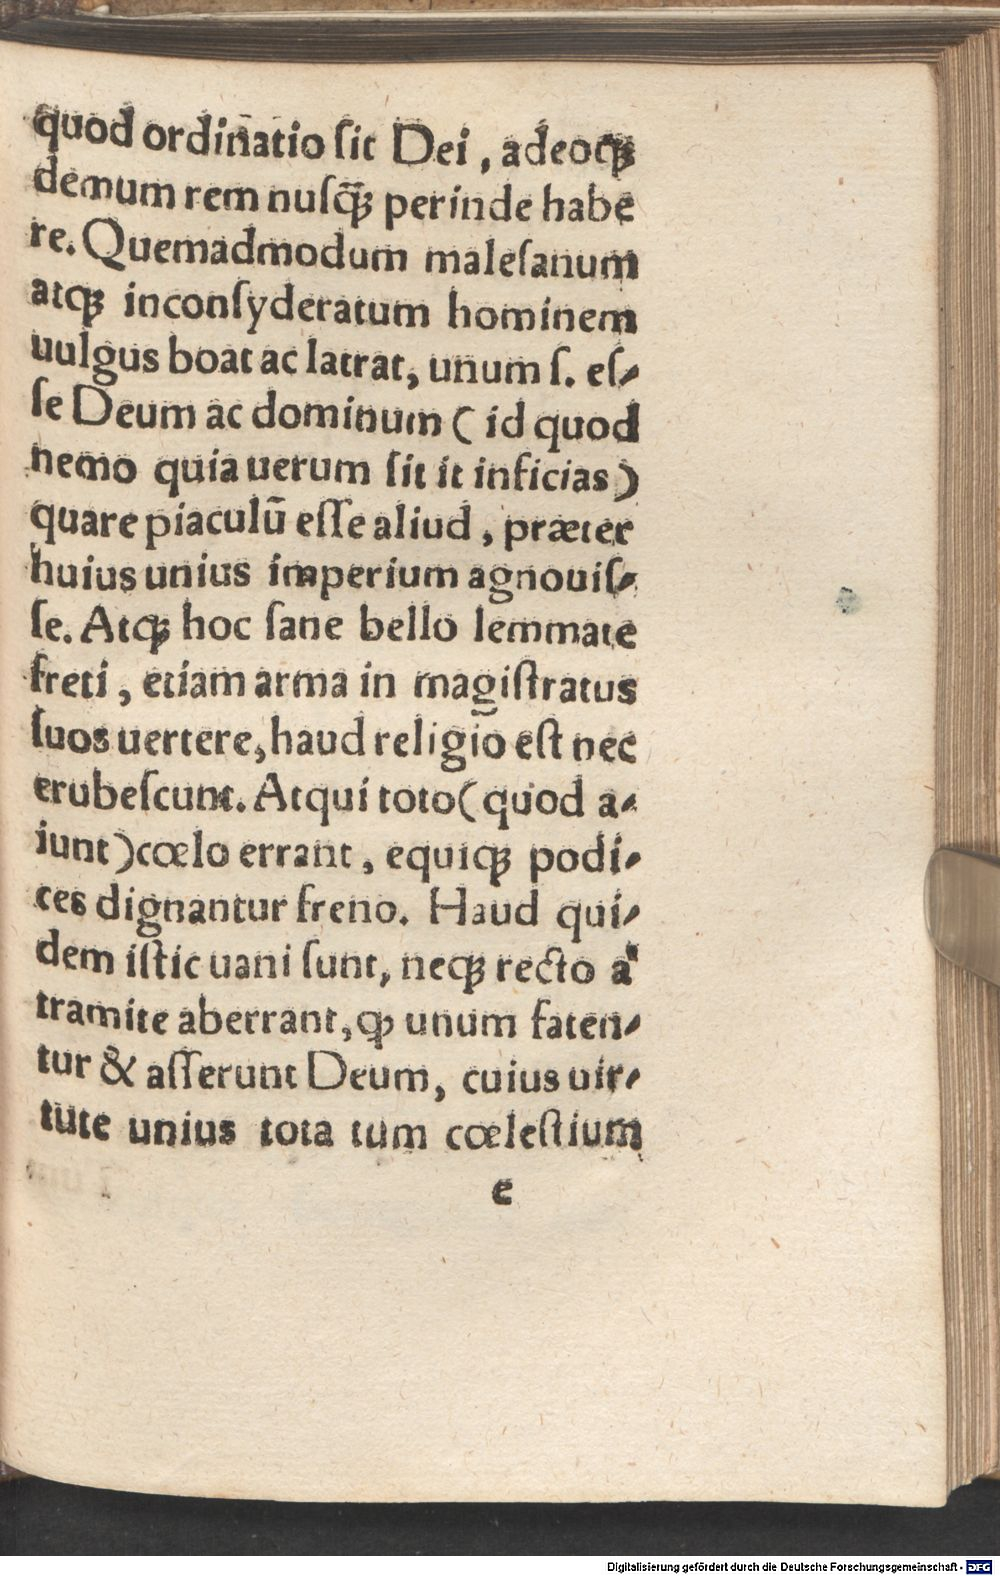 quod ordinatio ſit Dei, adeoqꝫ
demum rem nuſq̃ꝫ perinde habe
re. Quemadmodum maleſanum
atqꝫ inconſyderatum hominem
uulgus boat ac latrat, unum ſ. eſ-
ſe Deum ac dominum ( id quod
nemo quia uerum ſit it inficias)
quare piaculū eſſe aliud, præter
huius unius imperium agnouiſ-
ſe. Atqꝫ hoc ſane bello lemmate
freti, etiam arma in magiſtratus
ſuos uertere, haud religio eſt nec
erubeſcunt. Atqui toto( quod a-
iunt )cœlo errant, equiqꝫ podi-
ces dignantur freno. Haud qui-
dem iſtic uani ſunt, neqꝫ recto a'
tramite aberrant, ꝙ unum faten-
tur & aſſerunt Deum, cuius uir-
tute unius tota tum cœleſtium
e
Digitalisierung gefördert durch die Deutsche Forschungsgemeinschaft - DFG